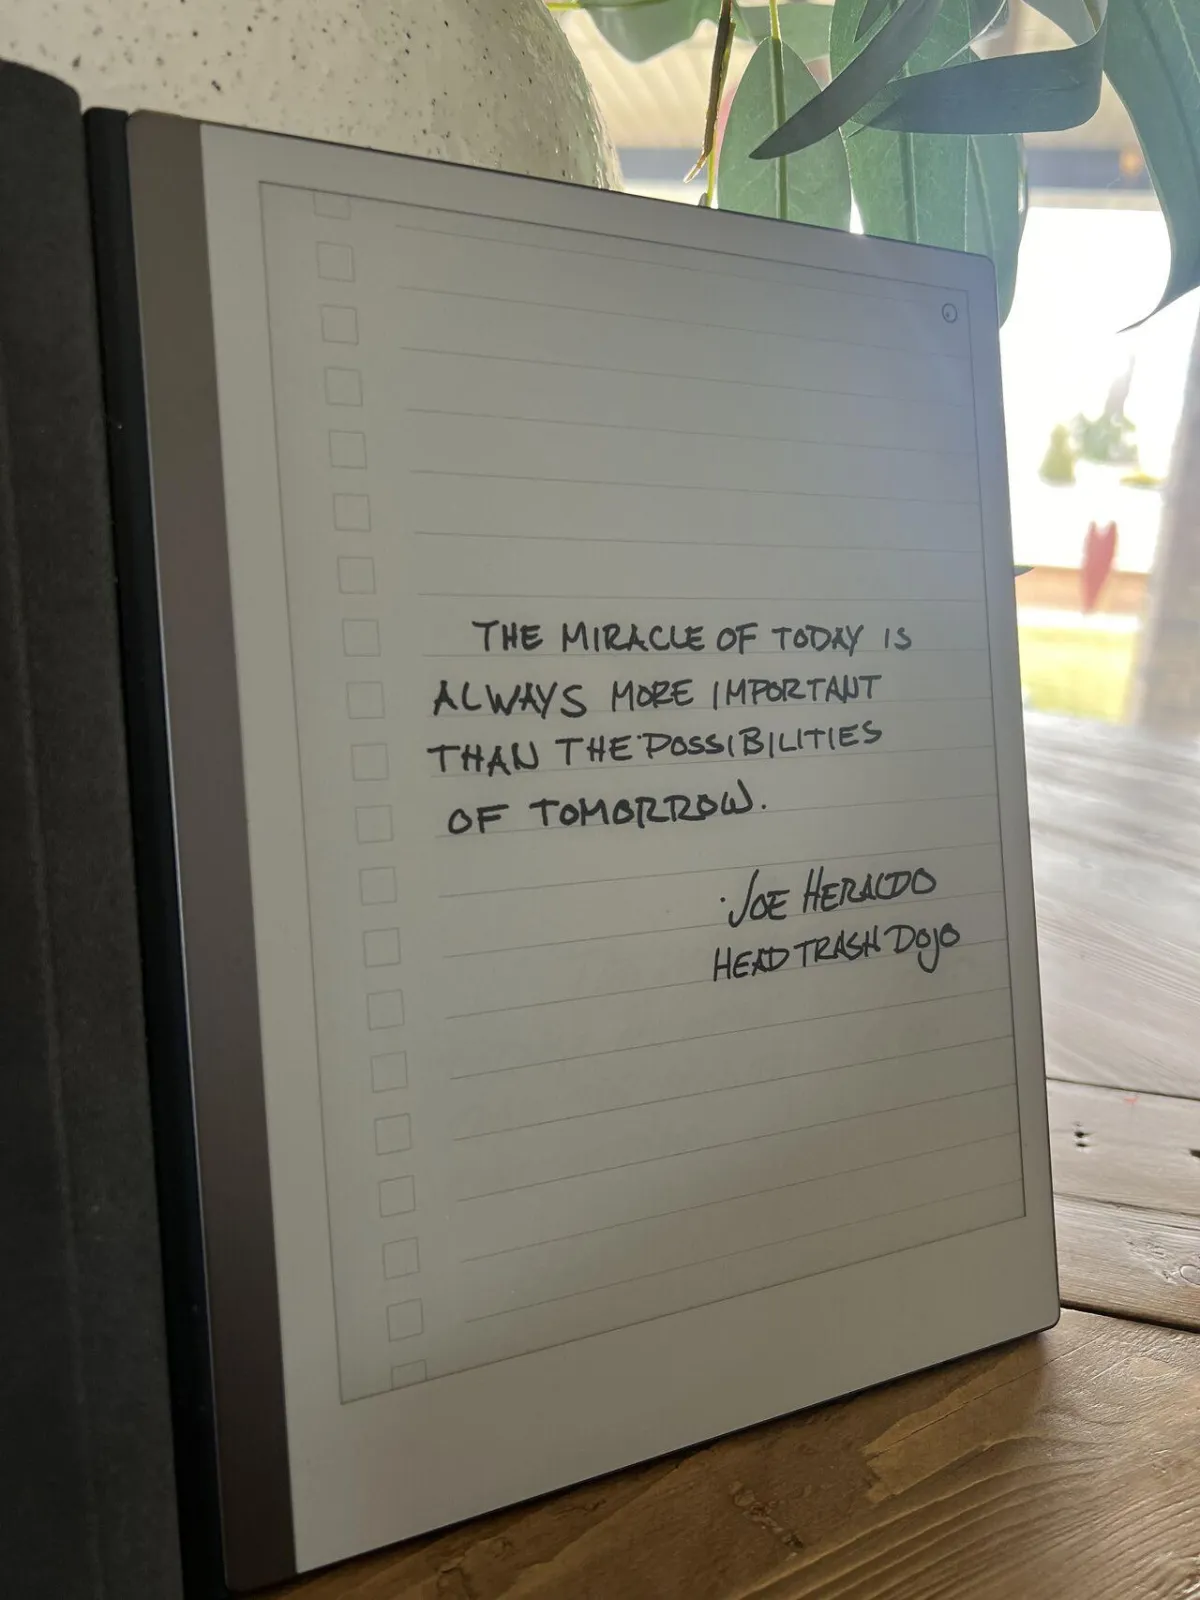 THE MIRACLE OF TODAY IS
ALWAYS MORE IMPORTANT
THAN THE POSSIBILITIES
OF TOMORROW.
·JOE HERALDO
HEAD TRASH DOJO